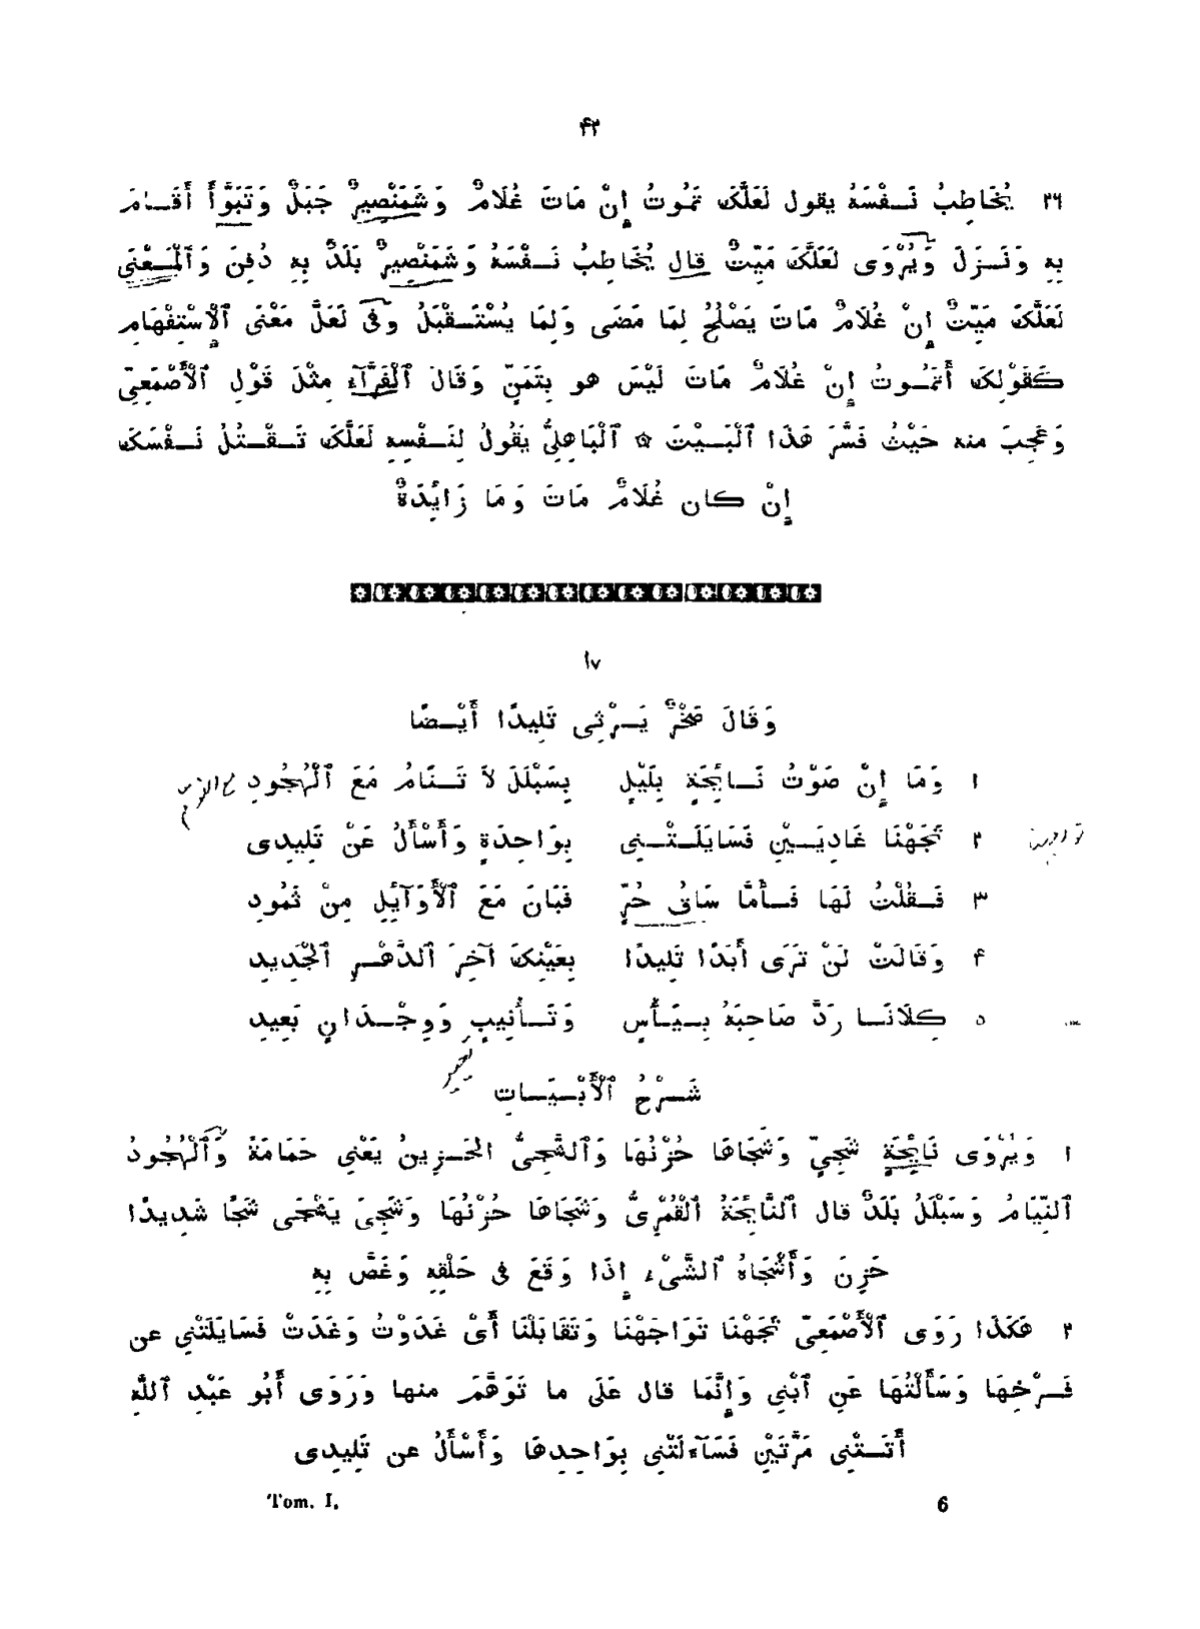 ۴۲
٢٦ يُخَاطِبُ نَـفْسَهُ يقول لَعَلَّكَ تَمُوتُ إِنْ مَاتَ غُلَامٌ وَشَمَنْصِيرٌ جَبَلٌ وَتَبَوَّأَ أَقَـامَ
بِهِ وَنَـزَلَ وَيُرْوَى لَعَلَّكَ مَيِّتٌ قال يُخَاطِبُ نَـفْسَهُ وَشَمَنْصِيرٌ بَلَدٌ بِهِ دُفِنَ وَٱلْمَـعْنَى
لَعَلَّكَ مَيِّتٌ إِنْ غُلَامٌ مَاتَ يَصْلُحُ لِمَا مَضَى وَلِمَا يُسْتَـقْبَلُ وَفِى لَعَلَّ مَعْنَى ٱلْإِسْتِفْهَامِ
كَقَوْلِكَ أَتَمُـوتُ إِنْ غُلَامٌ مَاتَ لَيْسَ هو بِتَمَنٍّ وَقَالَ ٱلْفَرَّآءُ مِثْلَ قَوْلِ ٱلْأَصْمَعِىِّ
وَعَجِبَ منه حَيْثُ فَسَّرَ هَذَا ٱلْبَـيْتَ ☆ ٱلْبَاهِلِىُّ يَقُولُ لِنَـفْسِهِ لَعَلَّكَ تَـقْـتُلُ نَـفْسَكَ
إِنْ كان غُلَامٌ مَاتَ وَمَا زَائِدَةٌ
١٧
وَقَالَ صَخْرٌ يَـرْثِى تَلِيدًا أَيْـضًا
١ وَمَا إِنْ صَوْتُ نَـائِحَةٍ بِلَيْلٍ بِسَبْلَلَ لَا تَـنَامُ مَعَ ٱلْهُجُودِ
٢ تَجَهْنَا غَادِيَـيْنِ فَسَايَلَـتْـنِى بِوَاحِدَةٍ وَأَسْأَلُ عَنْ تَلِيدِى
٣ فَـقُلْتُ لَهَا فَـأَمَّا سَاقُ حُرٍّ فَبَانَ مَعَ ٱلْأَوَآئِلِ مِنْ ثَمُودِ
۴ وَقَالَتْ لَنْ تَرَى أَبَدًا تَلِيدًا بِعَيْنِكَ آخِرَ ٱلدَّهْـرِ ٱلْجَدِيدِ
٥ كِلَانَـا رَدَّ صَاحِبَهُ بِـيَـأْسٍ وَتَـأْنِيبٍ وَوِجْـدَانٍ بَعِيدِ
شَـرْحُ ٱلْأَبْـيَـاتِ
١ وَيُرْوَى نَائِحَةٍ شَجِيٍّ وَشَجَاهَا حُزْنُهَا وَٱلشَّجِىُّ الحَـزِينُ يَعْنِى حَمَامَةً وَٱلْهُجُودُ
ٱلنِّيَامُ وَسَبْلَلُ بَلَدٌ قال ٱلنَّائِحَةُ ٱلْقُمْرِىُّ وَشَجَاهَا حُزْنُهَا وَشَجِىَ يَشْجَى شَجًا شَدِيدًا
حَزِنَ وَأَشْجَاهُ ٱلشَّىْءُ إِذَا وَقَعَ فِى حَلْقِهِ وَغَصَّ بِهِ
٢ هَكَذَا رَوَى ٱلْأَصْمَعِىُّ تَجَهْنَا تَوَاجَهْنَا وَتَقَابَلْنَا أَىْ غَدَوْتُ وَغَدَتْ فَسَايَلَتْنِى عن
فَـرْخِهَا وَسَأَلْتُهَا عَنِ ٱبْنِى وَإِنَّمَا قال عَلَى ما تَوَهَّمَ منها وَرَوَى أَبُو عَبْدِ ٱللَّهِ
أَتَـتْنِى مَرَّتَيْنِ فَسَآءَلَتْنِى بِوَاحِدِهَا وَأَسْأَلُ عن تَلِيدِى
Tom. I. 6